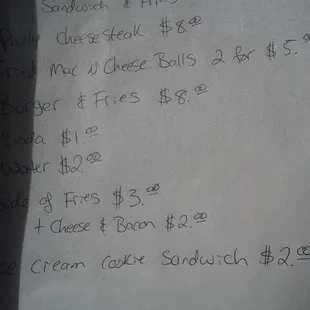 Sandwich & Fries
Philly cheesesteak $8.00
Fried Mac n Cheese Balls 2 for $5.00
Burger & Fries $8.00
Soda $1.00
Water $2.00
Side of Fries $3.00
+ Cheese & Bacon $2.00
Ice Cream Cookie Sandwich $2.00